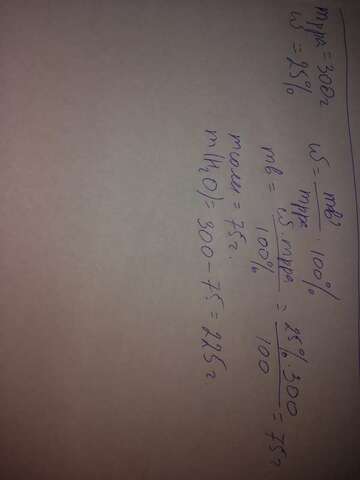 mрра = 300г
ω = 25%
ω = mв / mрра · 100%
mв = ω · mрра / 100% = 25% · 300 / 100 = 75г
mсоли = 75г.
m(H₂O) = 300 - 75 = 225г